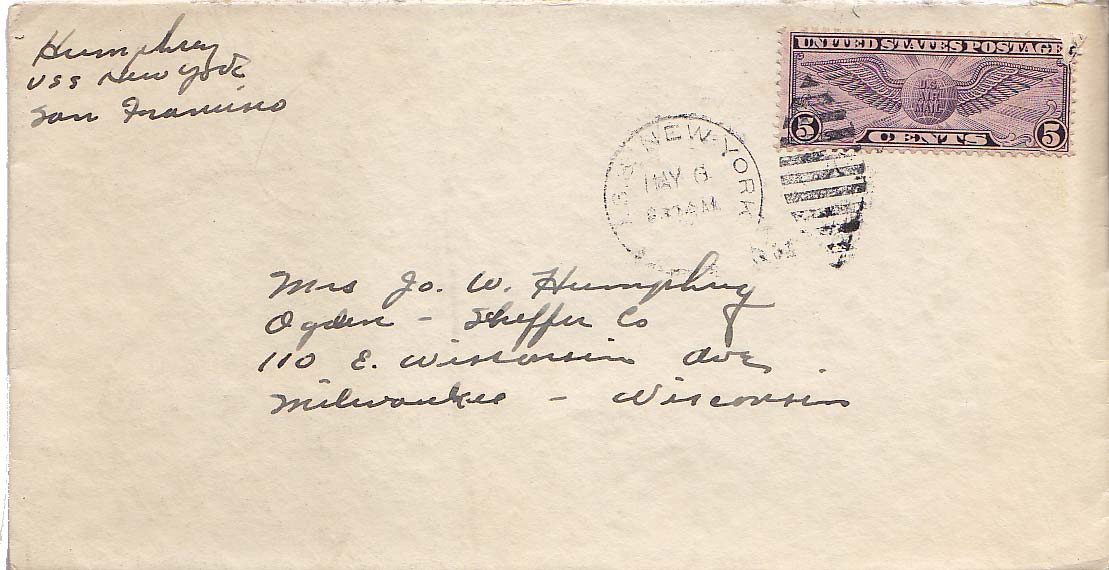 Humphrey
USS New York
San Francisco
UNITED STATES POSTAGE
U.S.
AIR
MAIL
5 CENTS 5
U.S.S. NEW YORK
MAY 6
AM
Mrs Jo. W. Humphrey
Ogden - Sheffer Co
110 E. Wisconsin Ave.
Milwaukee - Wisconsin